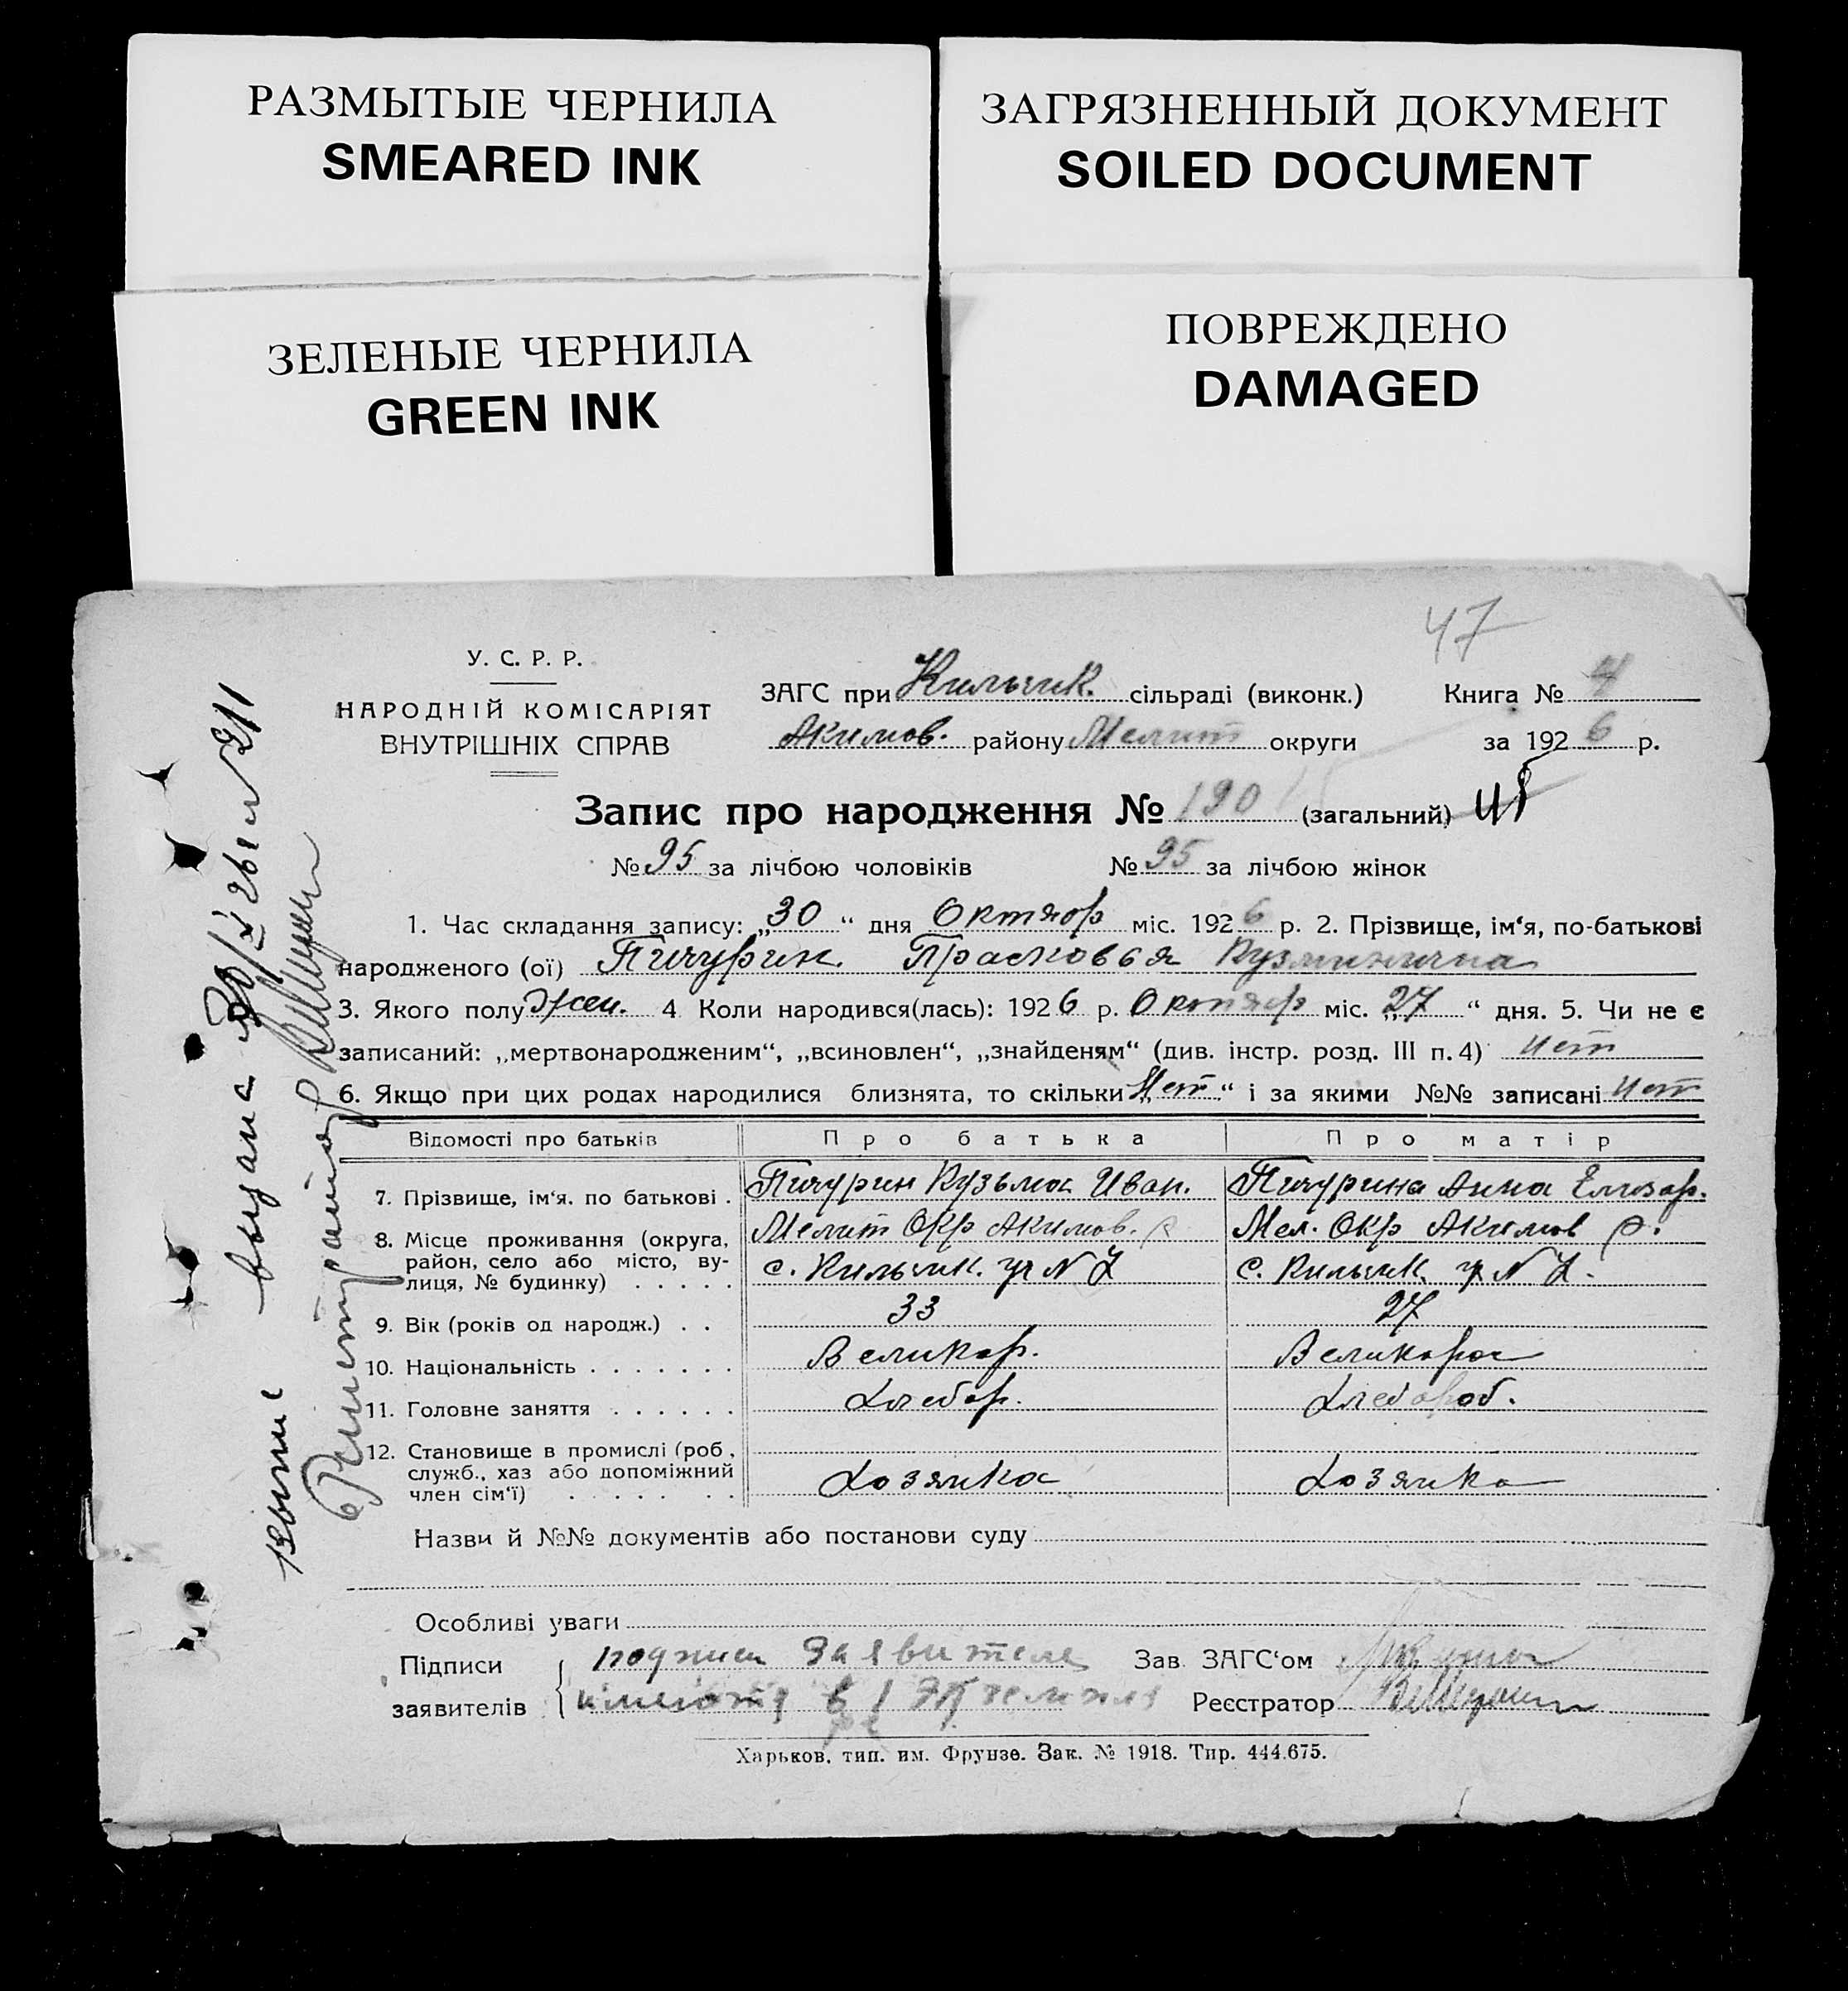 РАЗМЫТЫЕ ЧЕРНИЛА
SMEARED INK
ЗАГРЯЗНЕННЫЙ ДОКУМЕНТ
SOILED DOCUMENT
ЗЕЛЕНЫЕ ЧЕРНИЛА
GREEN INK
ПОВРЕЖДЕНО
DAMAGED
47
У. С. Р. Р.
НАРОДНІЙ КОМІСАРІЯТ
ВНУТРІШНІХ СПРАВ
ЗАГС при Кильчик. сільраді (виконк.) Книга № 4
Акимов. району Мелит округи за 1926 р.
Запис про народження № 190 (загальний)
№ 95 за лічбою чоловіків № 95 за лічбою жінок
1. Час складання запису: „30“ дня Октябр міс. 1926 р. 2. Прізвище, ім‘я, по-батькові
народженого (ої) Пичурин. Прасковья Кузминична
3. Якого полу жен. 4 Коли народився(лась): 1926 р. Октябр міс. „27“ дня. 5. Чи не є
записаний: „мертвонародженим“, „всиновлен“, „знайденям“ (див. інстр. розд. III п. 4) нет
6. Якщо при цих родах народилися близнята, то скільки „Нет“ і за якими №№ записані нет
Відомості про батьків Про батька Про матір
7. Прізвище, ім‘я. по батькові . Пичурин Кузьма Иван. Пичурина Анна Елизар.
8. Місце проживання (округа, Мелит Окр Акимов. р Мел. Окр Акимов р.
район, село або місто, ву- с. Кильчик. с. Кильчик
лиця, № будинку) . . . . .
9. Вік (років од народж.) . . 33 27
10. Національність . . . . . . . Великор. Великорос
11. Головне заняття . . . . . . Хлебор. Хлебороб.
12. Становище в промислі (роб.,
служб., хаз або допоміжний Хозяйка Хозяйка
член сім‘ї) . . . . . . .
Назви й №№ документів або постанови суду
Особливі уваги
Підписи подписи заявителя Зав. ЗАГС‘ом
заявителів имеются в 1 Экземпляре Реєстратор
Харьков, тип. им. Фрунзе. Зак. № 1918. Тир. 444.675.
выпис выдана
Регистратор